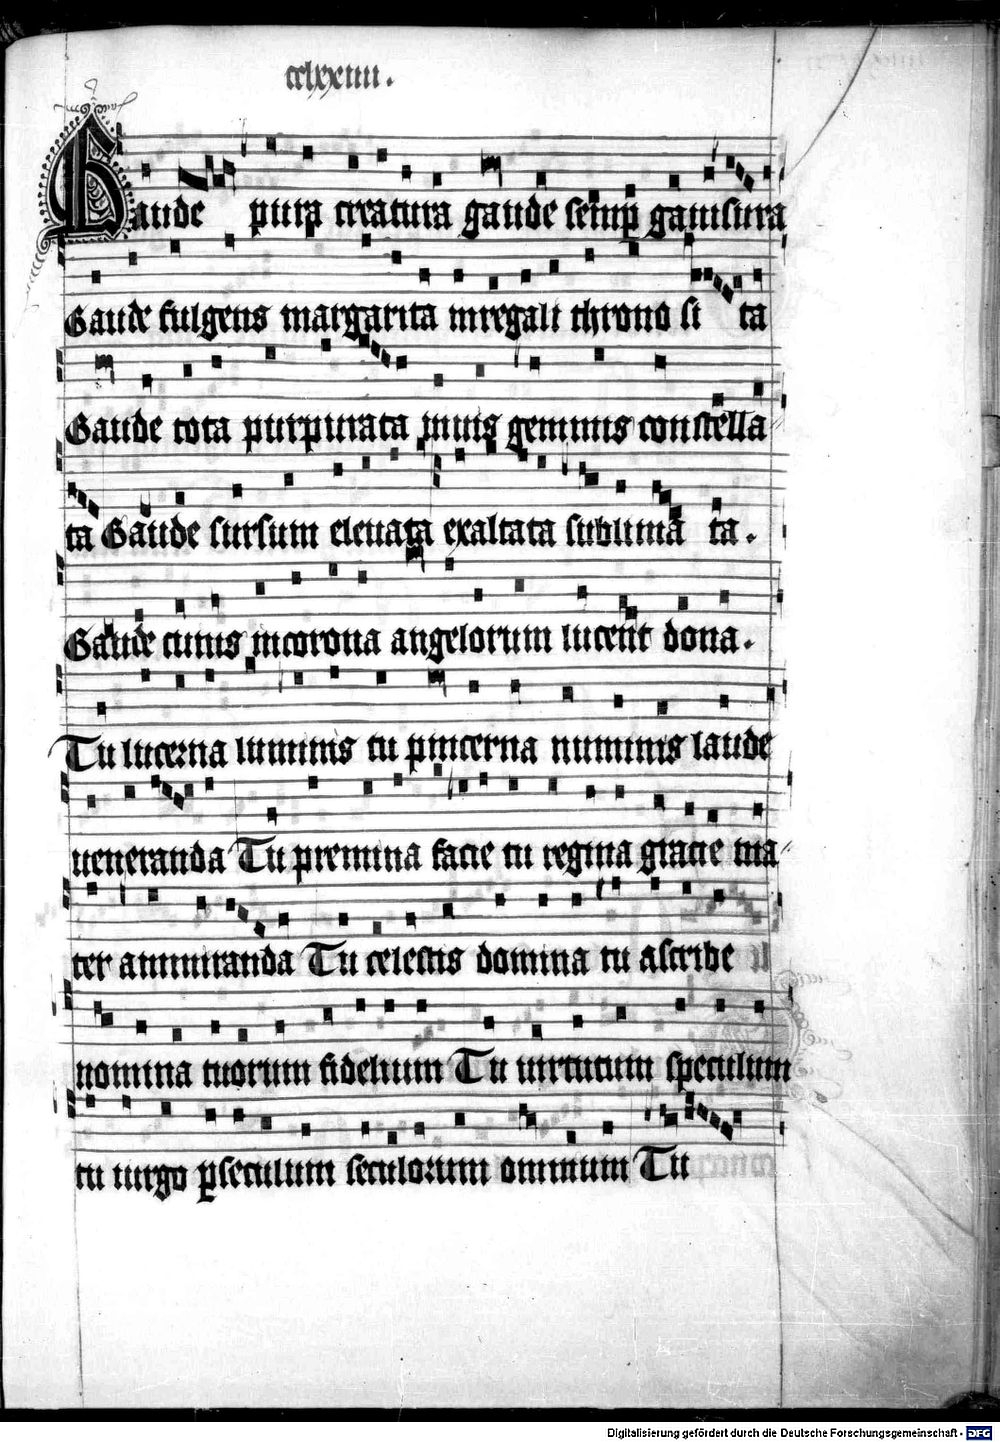 cclxxiiii.
Gaude pura creatura gaude semp gauisura
Gaude fulgens margarita in regali throno si ta
Gaude tota purpurata miris gemmis constella
ta Gaude sursum eleuata exaltata sublima ta.
Gaude cuius in corona angelorum lucent dona.
Tu lucerna luminis tu pincerna numinis laude
ueneranda Tu premina facie tu regina gracie ma
ter ammiranda Tu celestis domina tu ascribe
nomina tuorum fidelium Tu uirtutum speculum
tu uirgo p seculum seculorum omnium Tu
Digitalisierung gefördert durch die Deutsche Forschungsgemeinschaft - DFG